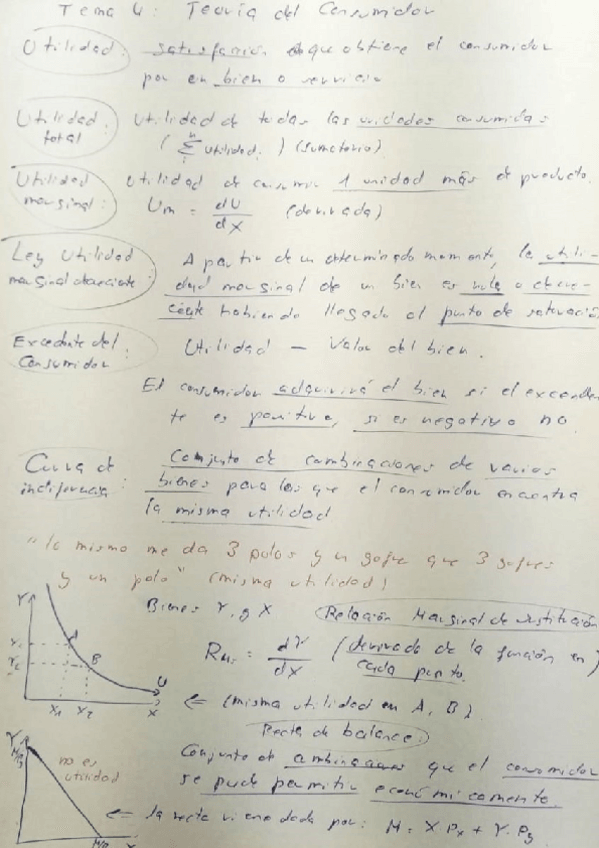 Tema 4: Teoría del Consumidor
Utilidad: satisfacción que obtiene el consumidor
por un bien o servicio
Utilidad total: Utilidad de todas las unidades consumidas
(Σ utilidad) (sumatorio)
Utilidad marginal: Utilidad de consumir 1 unidad más de producto.
Um = dU/dX (derivada)
Ley Utilidad marginal decreciente: A partir de un determinado momento, la utili-
dad marginal de un bien es nula o decre-
ciente habiendo llegado al punto de saturación
Excedente del Consumidor: Utilidad - Valor del bien.
El consumidor adquirirá el bien si el exceden-
te es positivo, si es negativo no.
Curva de indiferencia: Conjunto de combinaciones de varios
bienes para los que el consumidor encuentra
la misma utilidad
"lo mismo me da 3 polos y un gofre que 3 gofres
y un polo" (misma utilidad)
Bienes Y y X
Relación Marginal de sustitución
= dY/dX (derivada de la función en
cada punto)
Y
Y1
Y2
A
B
U
X1 X2 X
← (misma utilidad en A, B)
Recta de balance
Conjunto de combinaciones que el consumidor
se puede permitir económicamente.
Y
no es
utilidad
← la recta viene dada por: M = X·Px + Y·Py
X